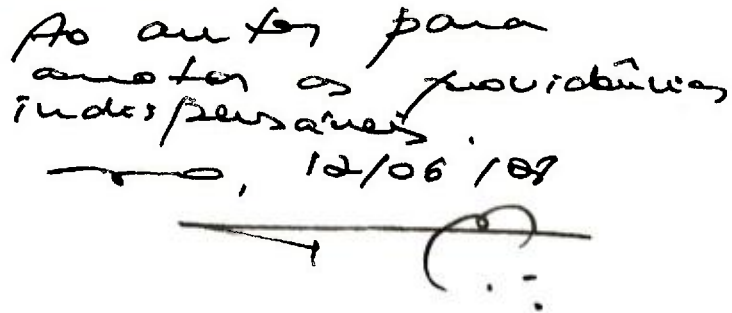 Ao autor para
anotar as providências
indispensáveis.
12/06/87